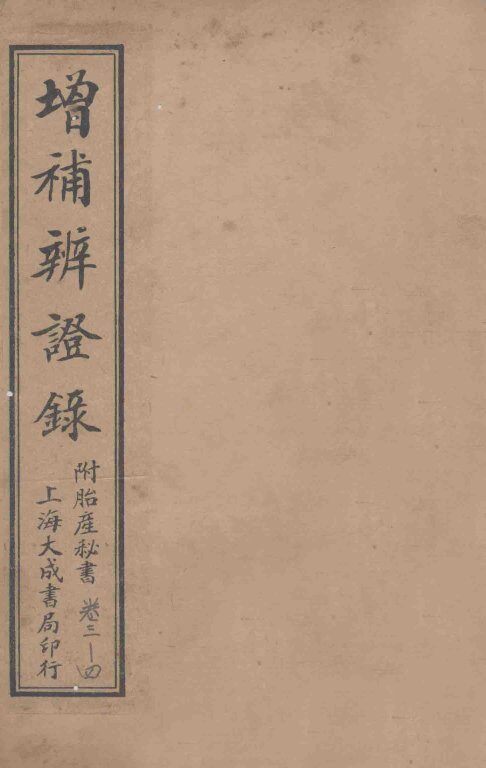 增補辨證錄
附胎產秘書 卷三—四
上海大成書局印行